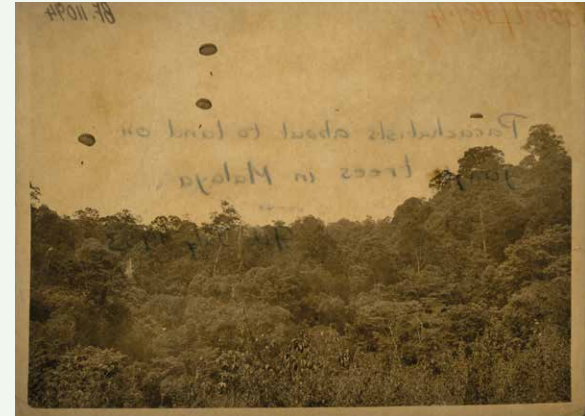 BF. 11094
Parachutists about to land on
jungle trees in Malaya